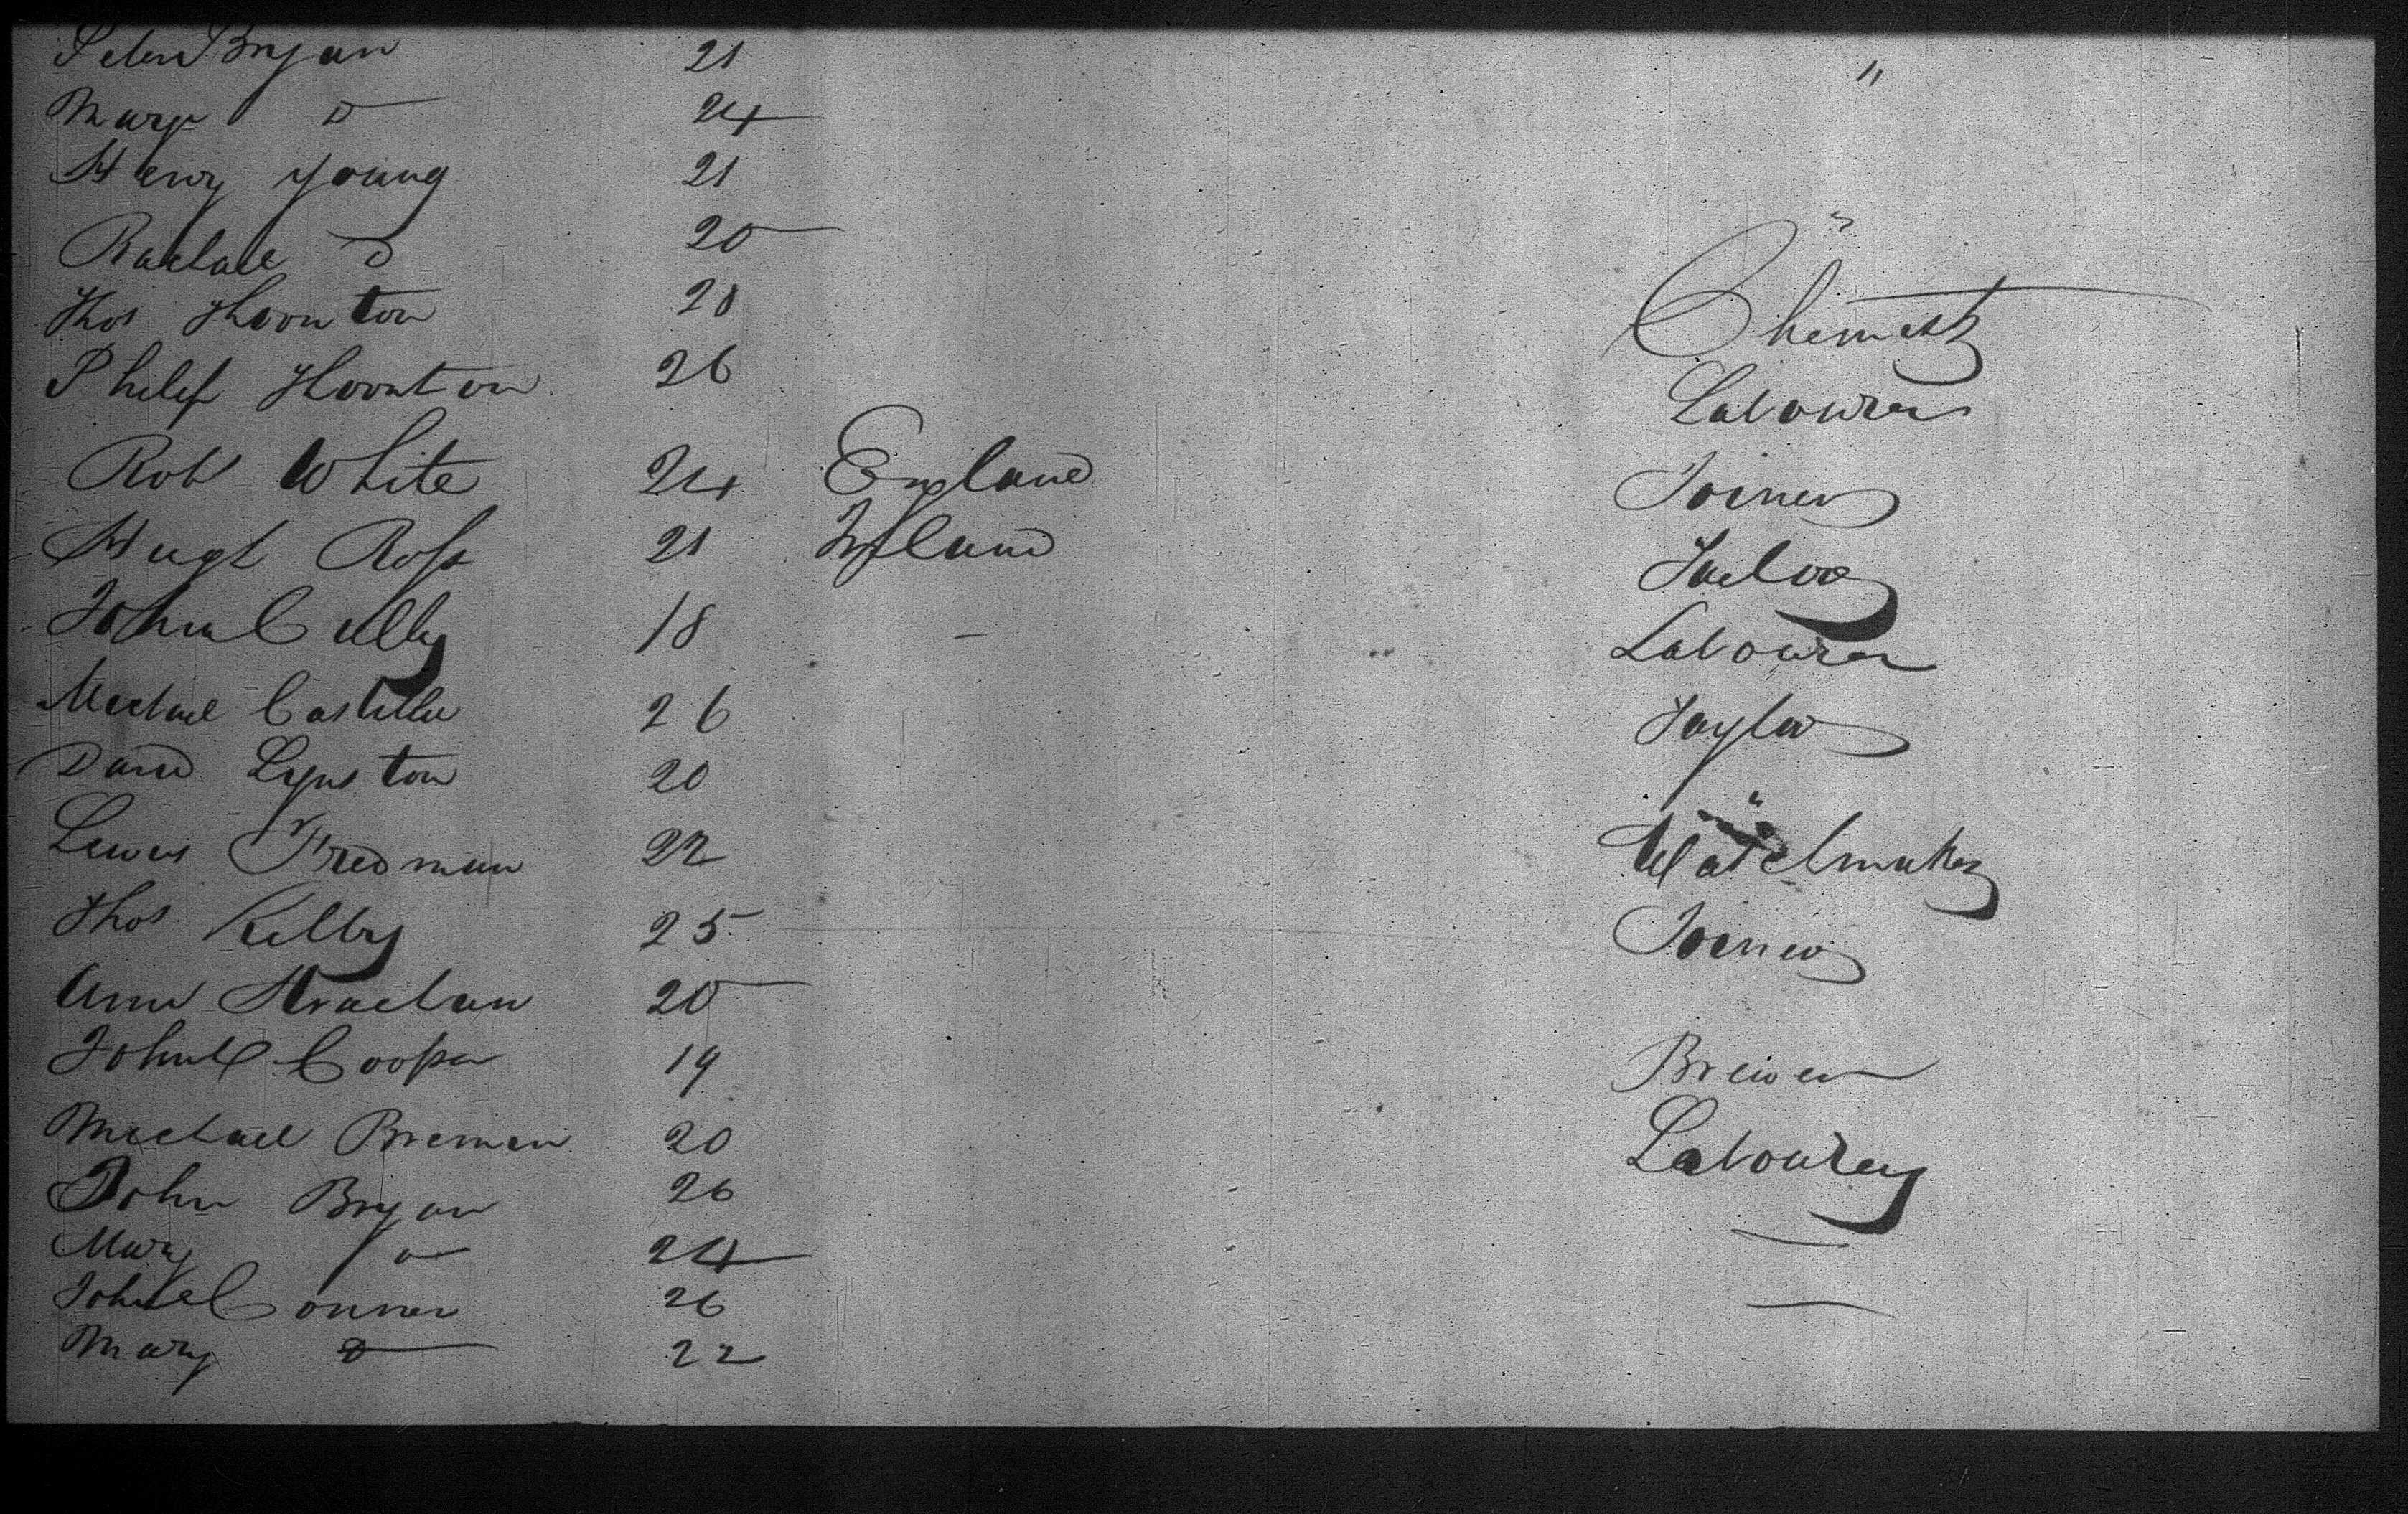 Peter Bryan 21 "
Mary Do 24
Henry Young 21
Rachael Do 20 "
Thos Thornton 28 Chemist
Philip Thornton 26 Labourer
Rob White 24 England Joiner
Hugh Ross 21 Ireland Tailor
John Cully 18 Labourer
Michael 26 Taylor
David 20 "
Lewis Fredman 22 Watchmaker
Thos Kelly 25 Joiner
Ann Strachan 20
John Cooper 19 Brewer
Michael Brennan 20 Labourer
John Bryan 26 —
Mary Do 24
John Conner 26 —
Mary Do 22